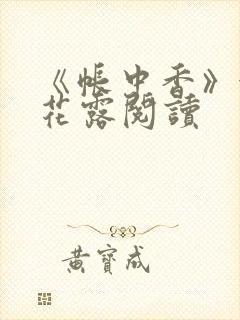 《帳中香》
花露閱讀
黃寶成